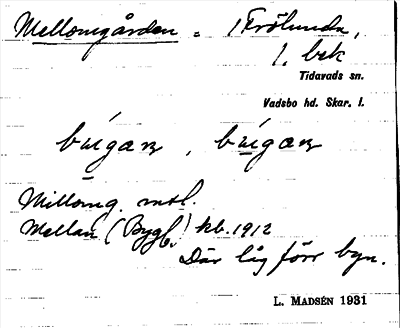 Mellomgården. i Frölunda,
1. bek
Tidavads sn.
Vadsbo hd. Skar. l.
bŷgaɴ, bŷgaɴ
Millomg. mtl.
Mellan (Bygl.) kb. 1912
Där låg förr byn.
L. MADSÉN 1931